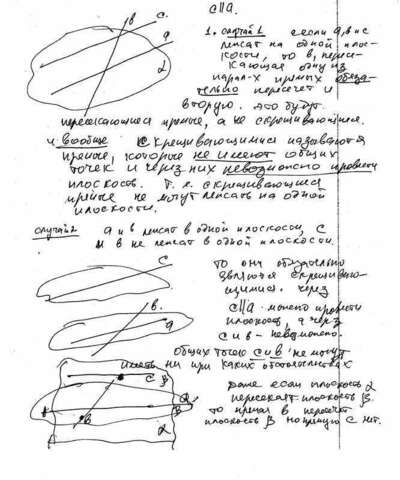 c||a.
1. случай 1 если а, в и с
лежат на одной плос-
кости, то в, пересе-
кающая одну из
парал-х прямых обяза-
тельно пересечет и
вторую. это будут
пересекающиеся прямые, а не скрещивающиеся.
и вообще скрещивающимися называются
прямые, которые не имеют общих
точек и через них невозможно провести
плоскость. Т.е. скрещивающиеся
прямые не могут лежать на одной
плоскости.
случай 2 а и в лежат в одной плоскости, с
и в не лежат в одной плоскости.
то они обязательно
являются скрещиваю-
щимися. через
c||a можно провести
плоскость, а через
с и в - невозможно.
общих точек с и в не могут
иметь ни при каких обстоятельствах
даже если плоскость α
пересекает плоскость β
то прямая в пересечет
плоскость β но прямую с нет.
в с
а
α
с
в.
а
с β
α
β
в
α